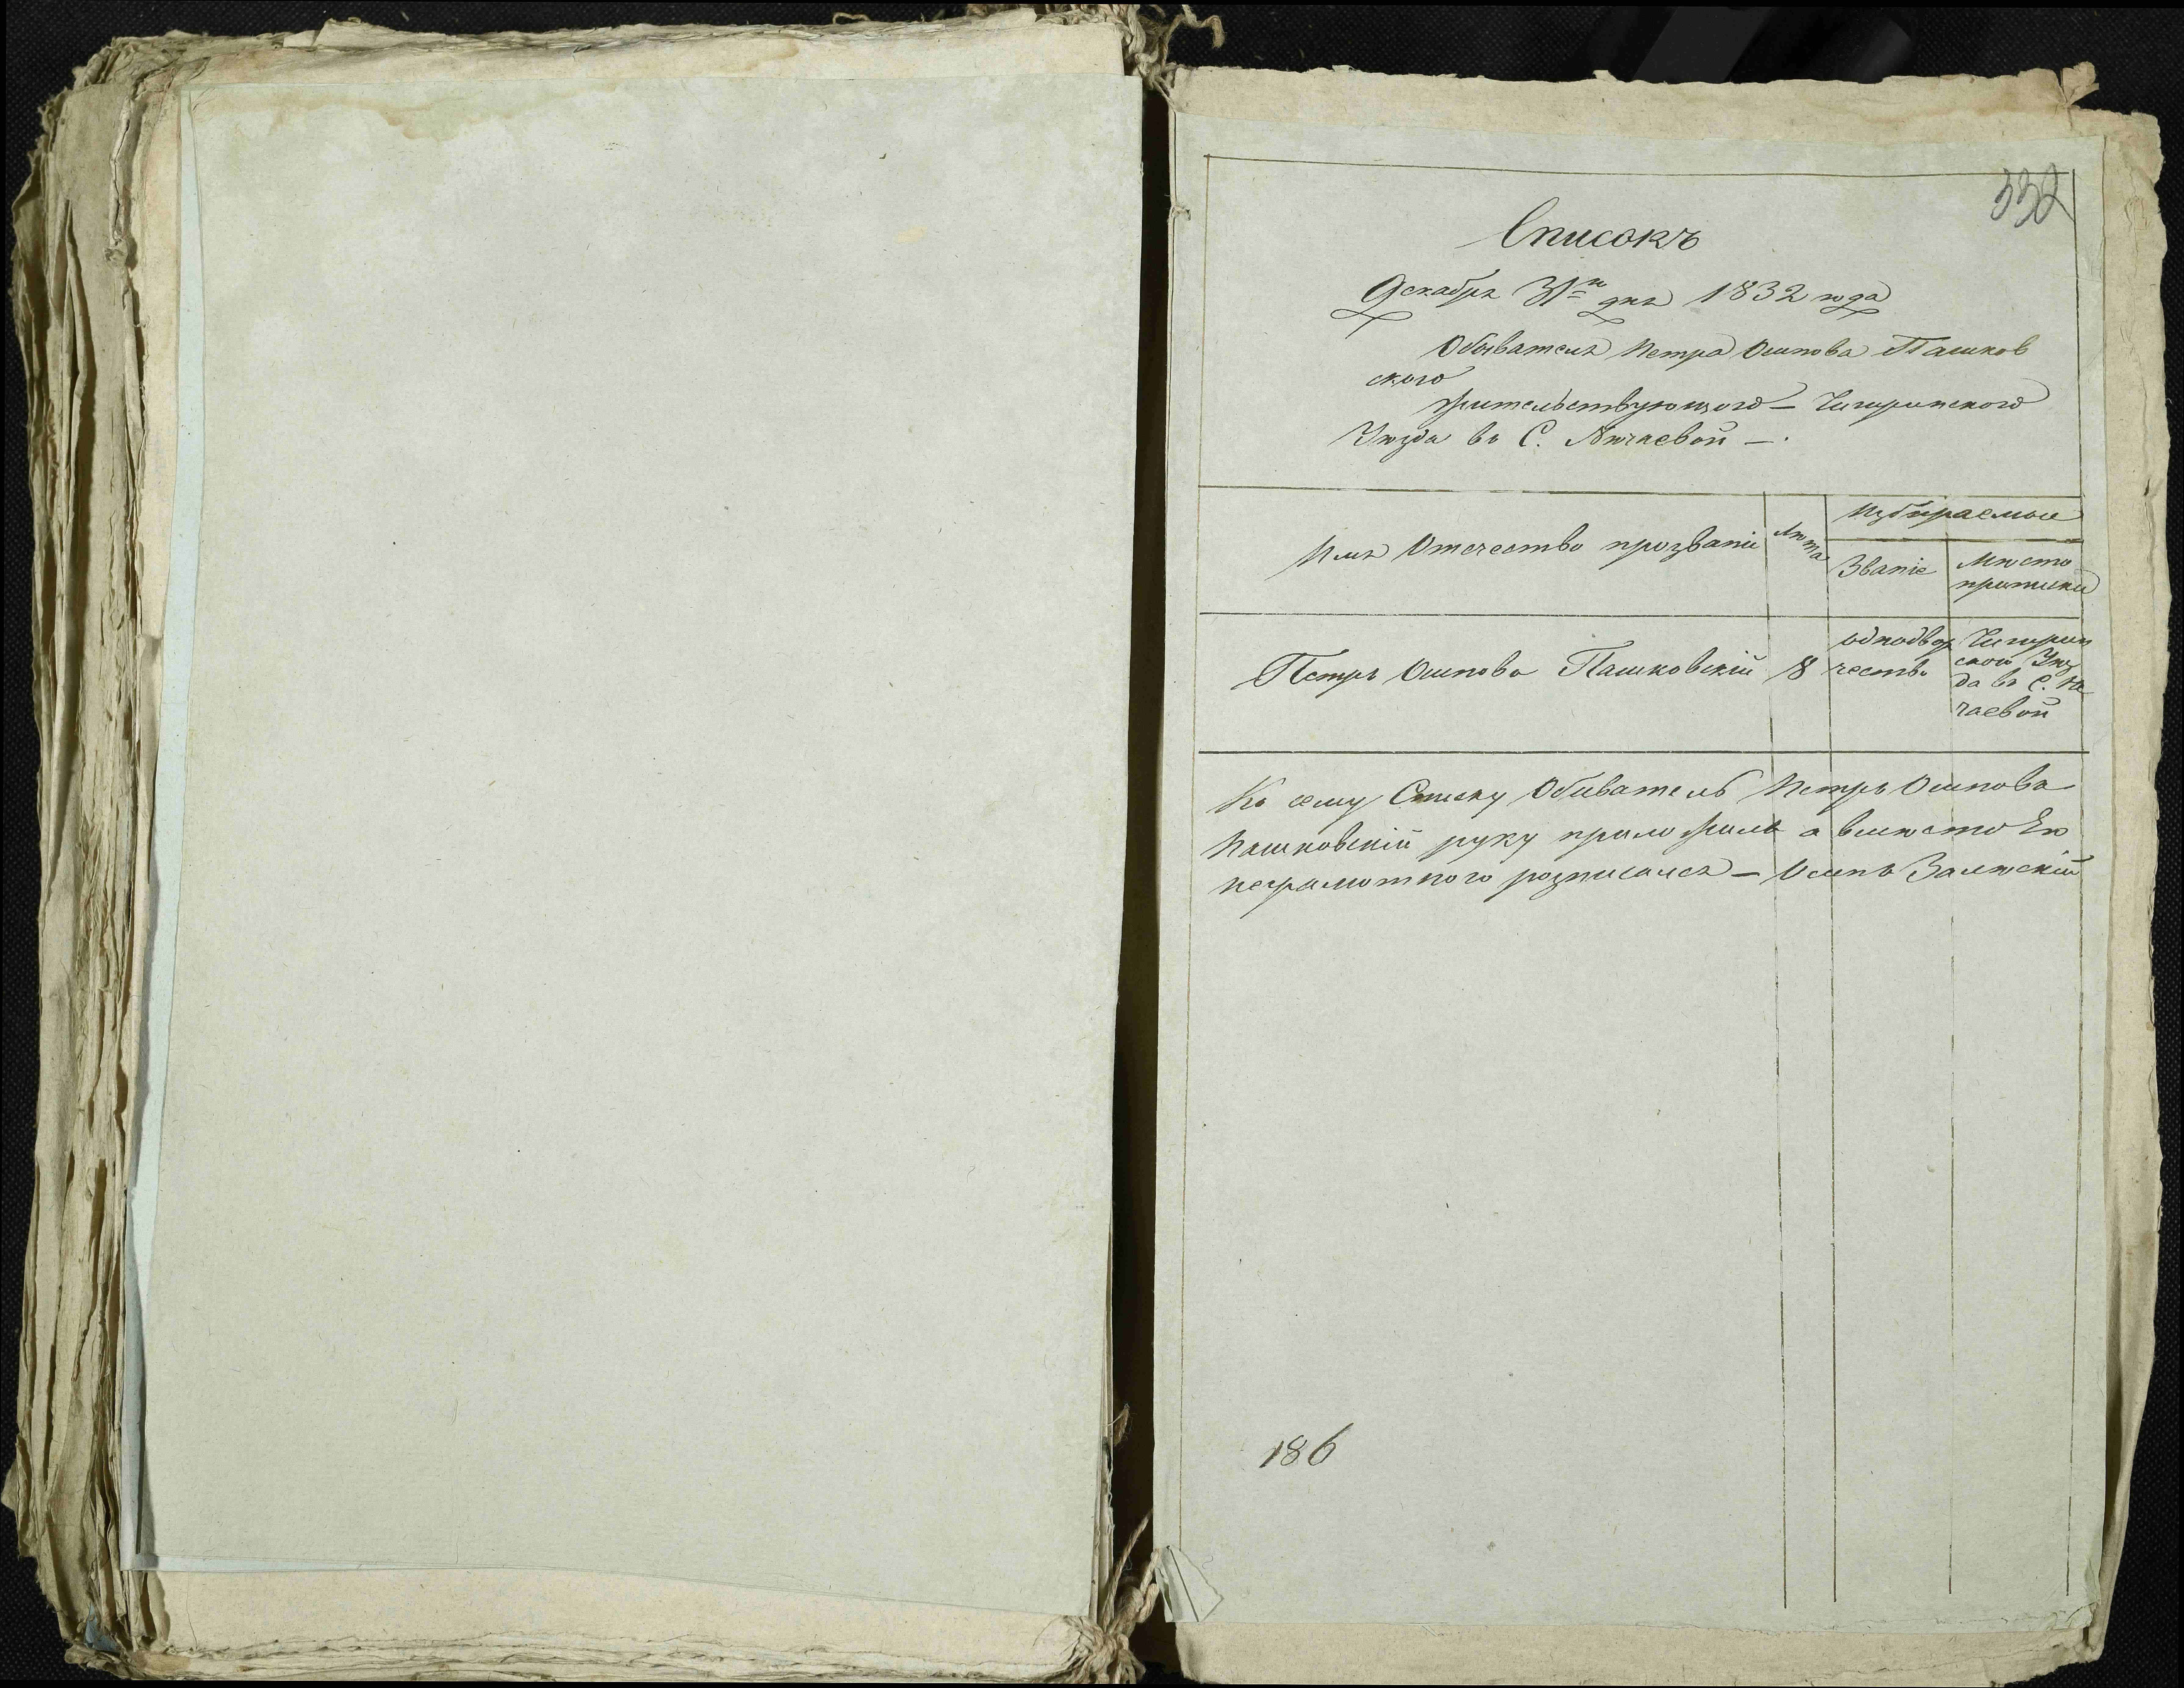 332
Списокъ
Декабря 31го дня 1832 года
Обывателя Петра Осипова Пашков
ского
жительствующого — Чигиринского
Уѣзда въ С.
Имя Отечество прозваніе
Лѣта
Избираемые
Званіе
Мѣсто
приписки
Петръ Осипова Пашковскій
8
однодвор
чество
Чигирин
ской Уѣз
да въ С. Не
чаевой
Къ сему Списку Обиватель Петръ Осипова
Пашковскій руку приложилъ а вмѣсто Его
неграмотного розписался — Осипъ Залѣскій
186